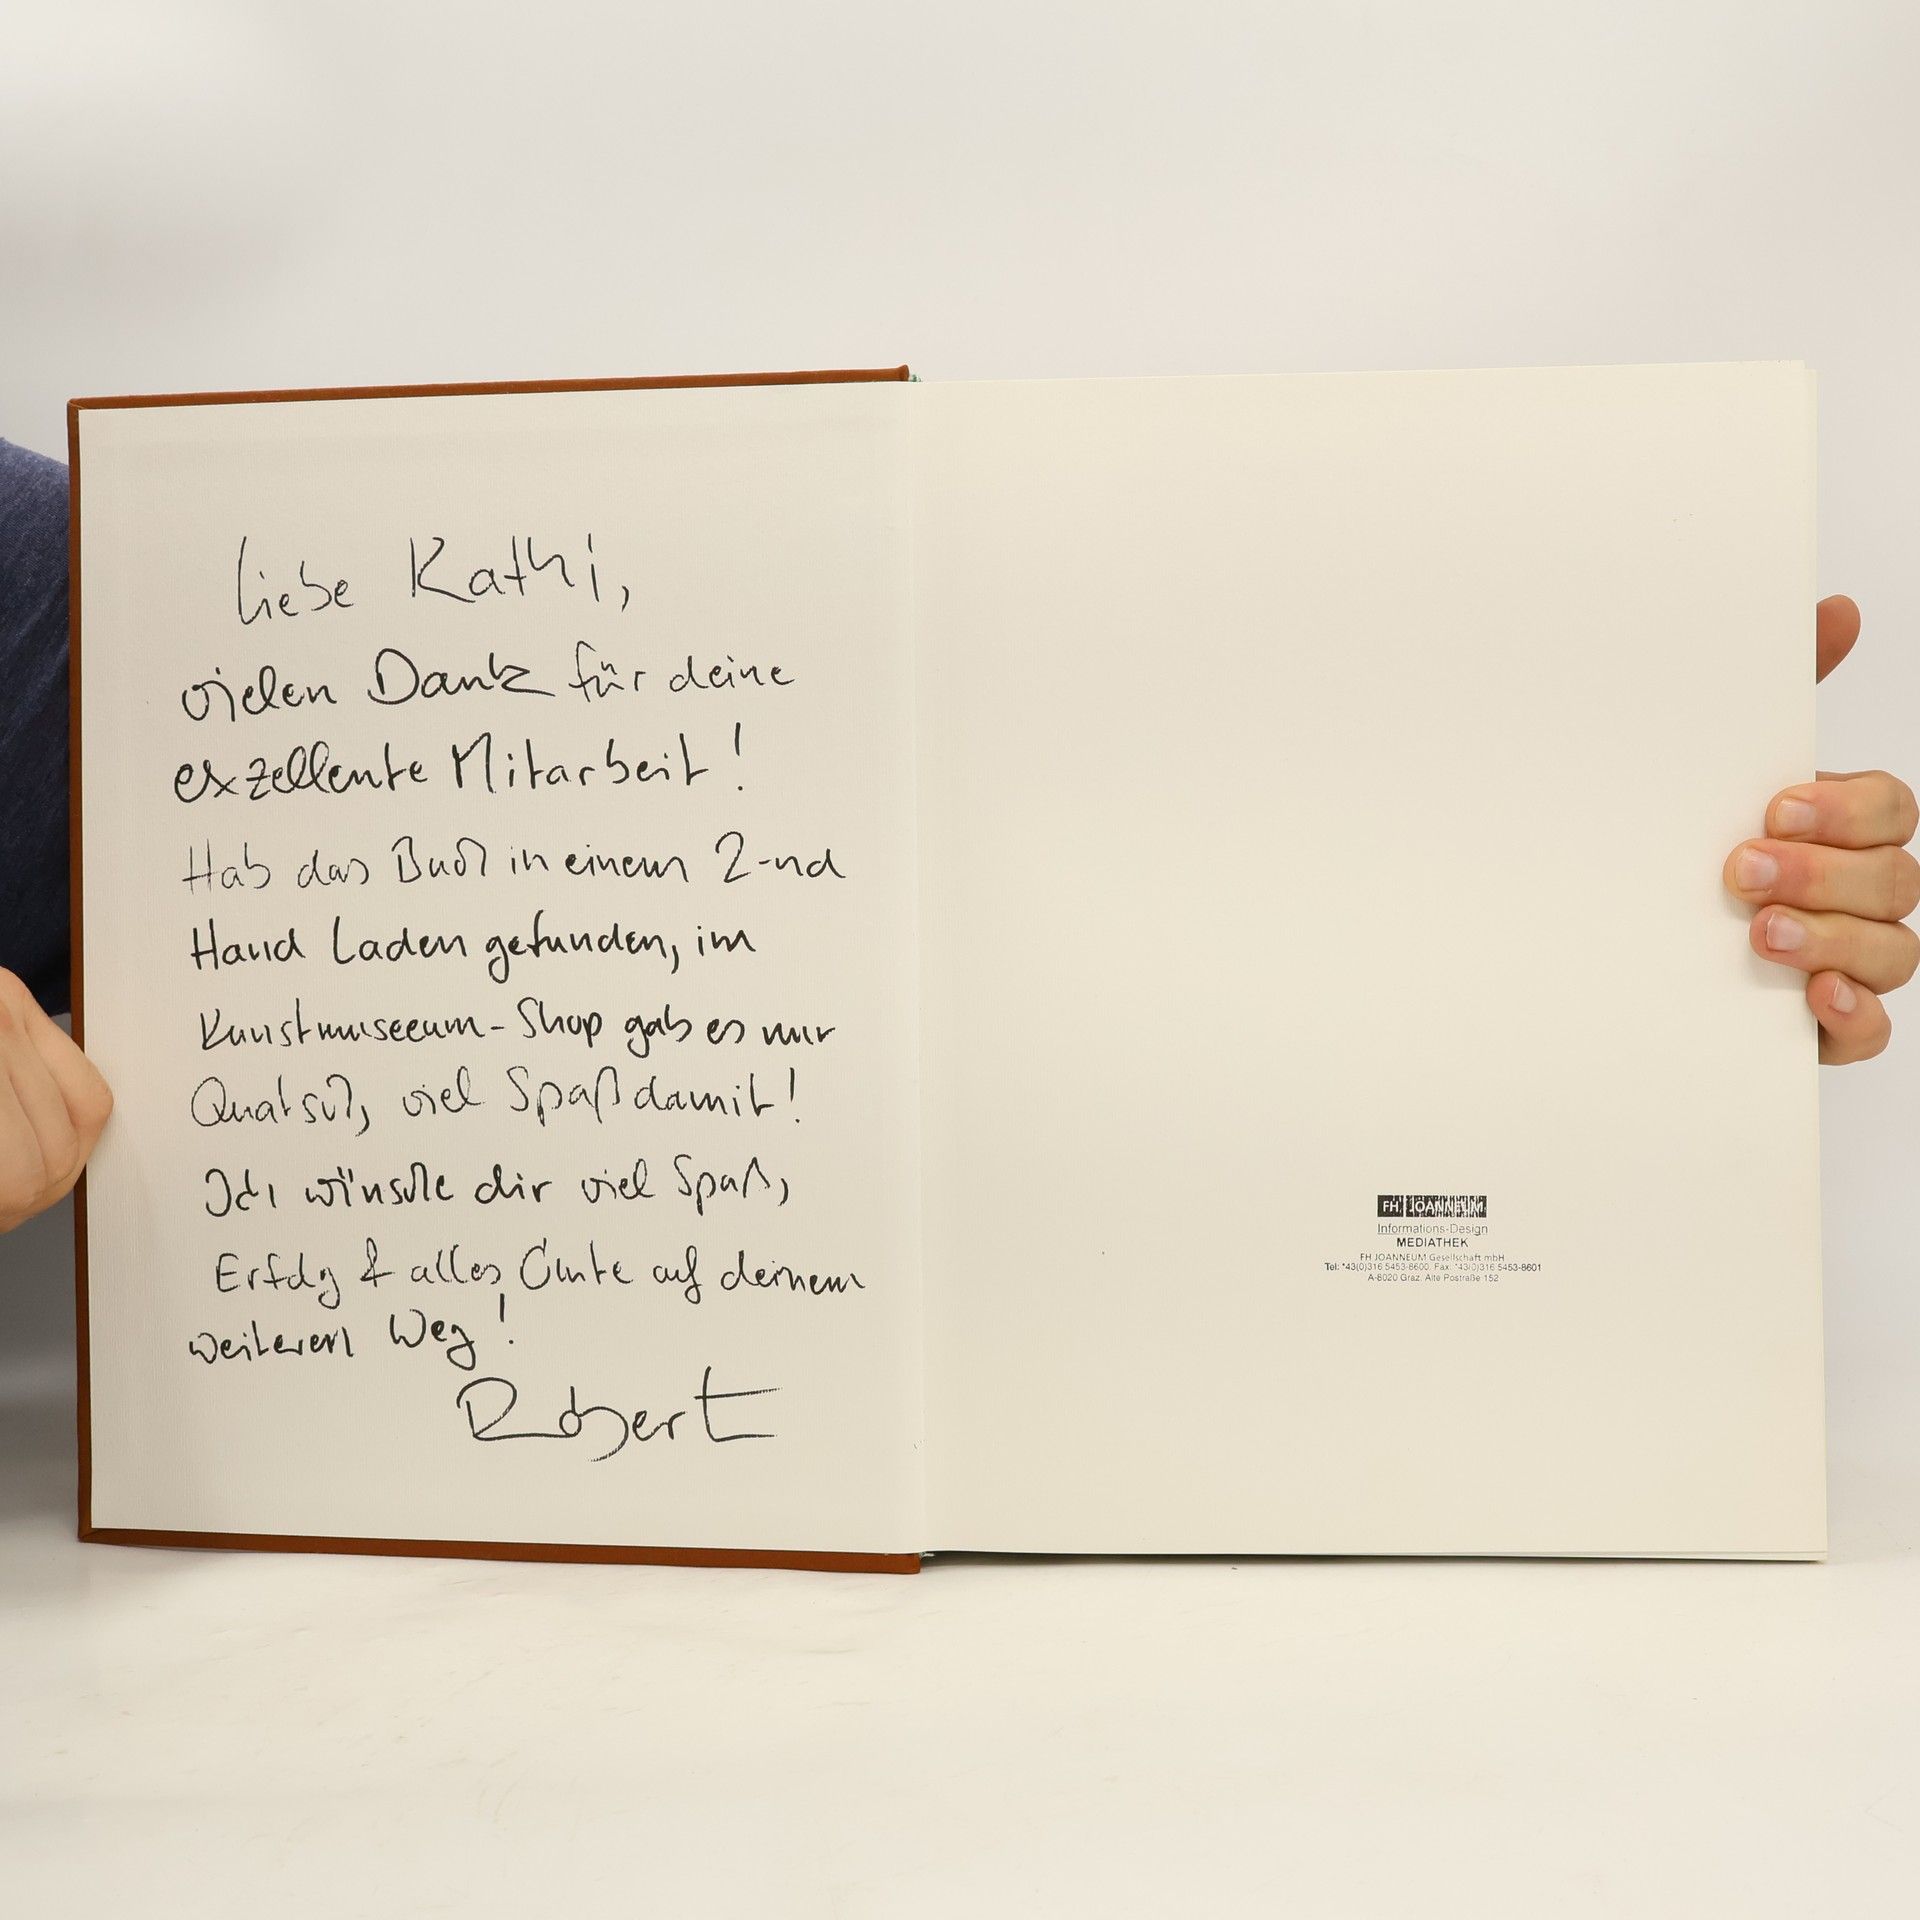 Liebe Kathi,
vielen Dank für deine
exzellente Mitarbeit!
Hab das Buch in einem 2-nd
Hand Laden gefunden, im
Kunstmuseeum-Shop gab es nur
Quatsch, viel Spaß damit!
Ich wünsche dir viel Spaß,
Erfolg & alles Gute auf deinem
weiteren Weg!
Robert
FH JOANNEUM
Informations-Design
MEDIATHEK
FH JOANNEUM Gesellschaft mbH
Tel: *43(0)316 5453-8600, Fax: *43(0)316 5453-8601
A-8020 Graz, Alte Postraße 152